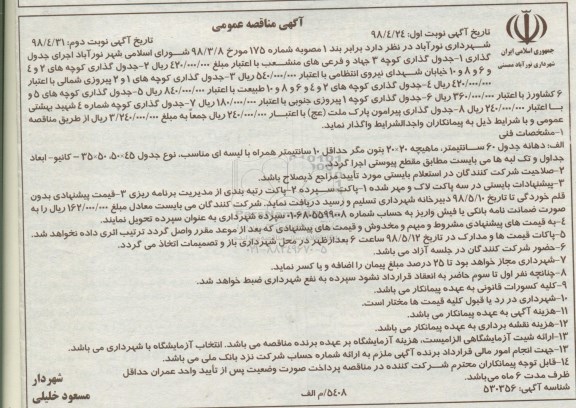 آگهی مناقصه عمومی
جمهوری اسلامی ایران
شهرداری نورآباد ممسنی
تاریخ آگهی نوبت اول: ۹۸/۴/۲۴
تاریخ آگهی نوبت دوم: ۹۸/۴/۳۱
شهرداری نورآباد در نظر دارد برابر بند ۱ مصوبه شماره ۱۷۵ مورخ ۹۸/۳/۸ شورای اسلامی شهر نورآباد اجرای جدول
گذاری ۱-جدول گذاری کوچه ۳ جهاد و فرعی های منشعب با اعتبار مبلغ ۴۲۰/۰۰۰/۰۰۰ ریال ۲-جدول گذاری کوچه های ۲ و ۴
و ۶ و ۸ و ۱۰ خیابان شهدای نیروی انتظامی با اعتبار ۵۴۰/۰۰۰/۰۰۰ ریال ۳-جدول گذاری کوچه های ۱ و ۲ پیروزی شمالی با اعتبار
۴۲۰/۰۰۰/۰۰۰ ریال ۴-جدول گذاری کوچه های ۲ و ۴ و ۶ و ۸ و ۱۰ طبیعت با اعتبار ۸۴۰/۰۰۰/۰۰۰ ریال ۵-جدول گذاری کوچه های ۵ و
۶ کشاورز با اعتبار ۳۶۰/۰۰۰/۰۰۰ ریال ۶-جدول گذاری کوچه ۱ پیروزی جنوبی با اعتبار ۱۸۰/۰۰۰/۰۰۰ ریال ۷-جدول گذاری کوچه شماره ۴ شهید بهشتی
با اعتبار ۲۴۰/۰۰۰/۰۰۰ ریال ۸-جدول گذاری پیرامون پارک ملت (عج) با اعتبار ۲۴۰/۰۰۰/۰۰۰ ریال جمعاً به مبلغ ۳/۲۴۰/۰۰۰/۰۰۰ ریال از طریق مناقصه
عمومی و با شرایط ذیل به پیمانکاران واجدالشرایط واگذار نماید.
۱-مشخصات فنی
الف: دهانه جدول ۶۰ سانتیمتر، ماهیچه ۲۰*۲۰ بتون مگر حداقل ۱۰ سانتیمتر همراه با لیسه ای مناسب، نوع جدول ۴۵*۵۰، ۵۰*۳۵ - کانیو- ابعاد
جداول و تک لبه ها می بایست مطابق مقطع پیوستی اجرا گردد.
۲-صلاحیت شرکت کنندگان در استعلام بایستی مورد تأیید مراجع ذیصلاح باشد.
۳-پیشنهادات بایستی در سه پاکت لاک و مهر شده ۱-پاکت سپرده ۲-پاکت رتبه بندی از مدیریت برنامه ریزی ۳-قیمت پیشنهادی بدون
قلم خوردگی تا تاریخ ۹۸/۵/۱۰ دبیرخانه شهرداری تسلیم و رسید دریافت نماید. شرکت کنندگان می بایست معادل مبلغ ۱۶۲/۰۰۰/۰۰۰ ریال را به
صورت ضمانت نامه بانکی یا فیش واریز به حساب شماره سپرده شهرداری به عنوان سپرده تحویل نمایند.
۴-به قیمت های پیشنهادی مشروط و مبهم و مخدوش و قیمت های پیشنهادی که بعد از موعد مقرر واصل گردد ترتیب اثری داده نخواهد شد.
۵-پاکات قیمت ها و مدارک در تاریخ ۹۸/۵/۱۲ ساعت ۶ بعدازظهر در محل شهرداری باز و تصمیمات اتخاذ می گردد.
۶-حضور شرکت کنندگان در جلسه آزاد می باشد.
۷-شهرداری مجاز خواهد بود تا ۲۵ درصد مبلغ پیمان را اضافه و یا کسر نماید.
۸-چنانچه نفر اول تا سوم حاضر به انعقاد قرارداد نشود سپرده به نفع شهرداری ضبط خواهد شد.
۹-کلیه کسورات قانونی به عهده پیمانکار می باشد.
۱۰-شهرداری در رد یا قبول کلیه قیمت ها مختار است.
۱۱-هزینه آگهی به عهده پیمانکار می باشد.
۱۲-هزینه نقشه برداری به عهده پیمانکار می باشد.
۱۳-ارائه شیت آزمایشگاهی الزامیست، هزینه آزمایشگاه بر عهده برنده مناقصه می باشد. انتخاب آزمایشگاه با شهرداری می باشد.
۱۳-جهت انجام امور مالی قرارداد برنده آگهی ملزم به ارائه شماره حساب شرکت نزد بانک ملی می باشد.
۱۴-قابل توجه پیمانکاران محترم شرکت کننده در مناقصه پرداخت صورت وضعیت پس از تأیید واحد عمران حداقل
ظرف مدت ۶ ماه می‌باشد.
شناسه آگهی: ۵۳۰۳۵۶
۵۴۰۸/م الف
شهردار
مسعود خلیلی